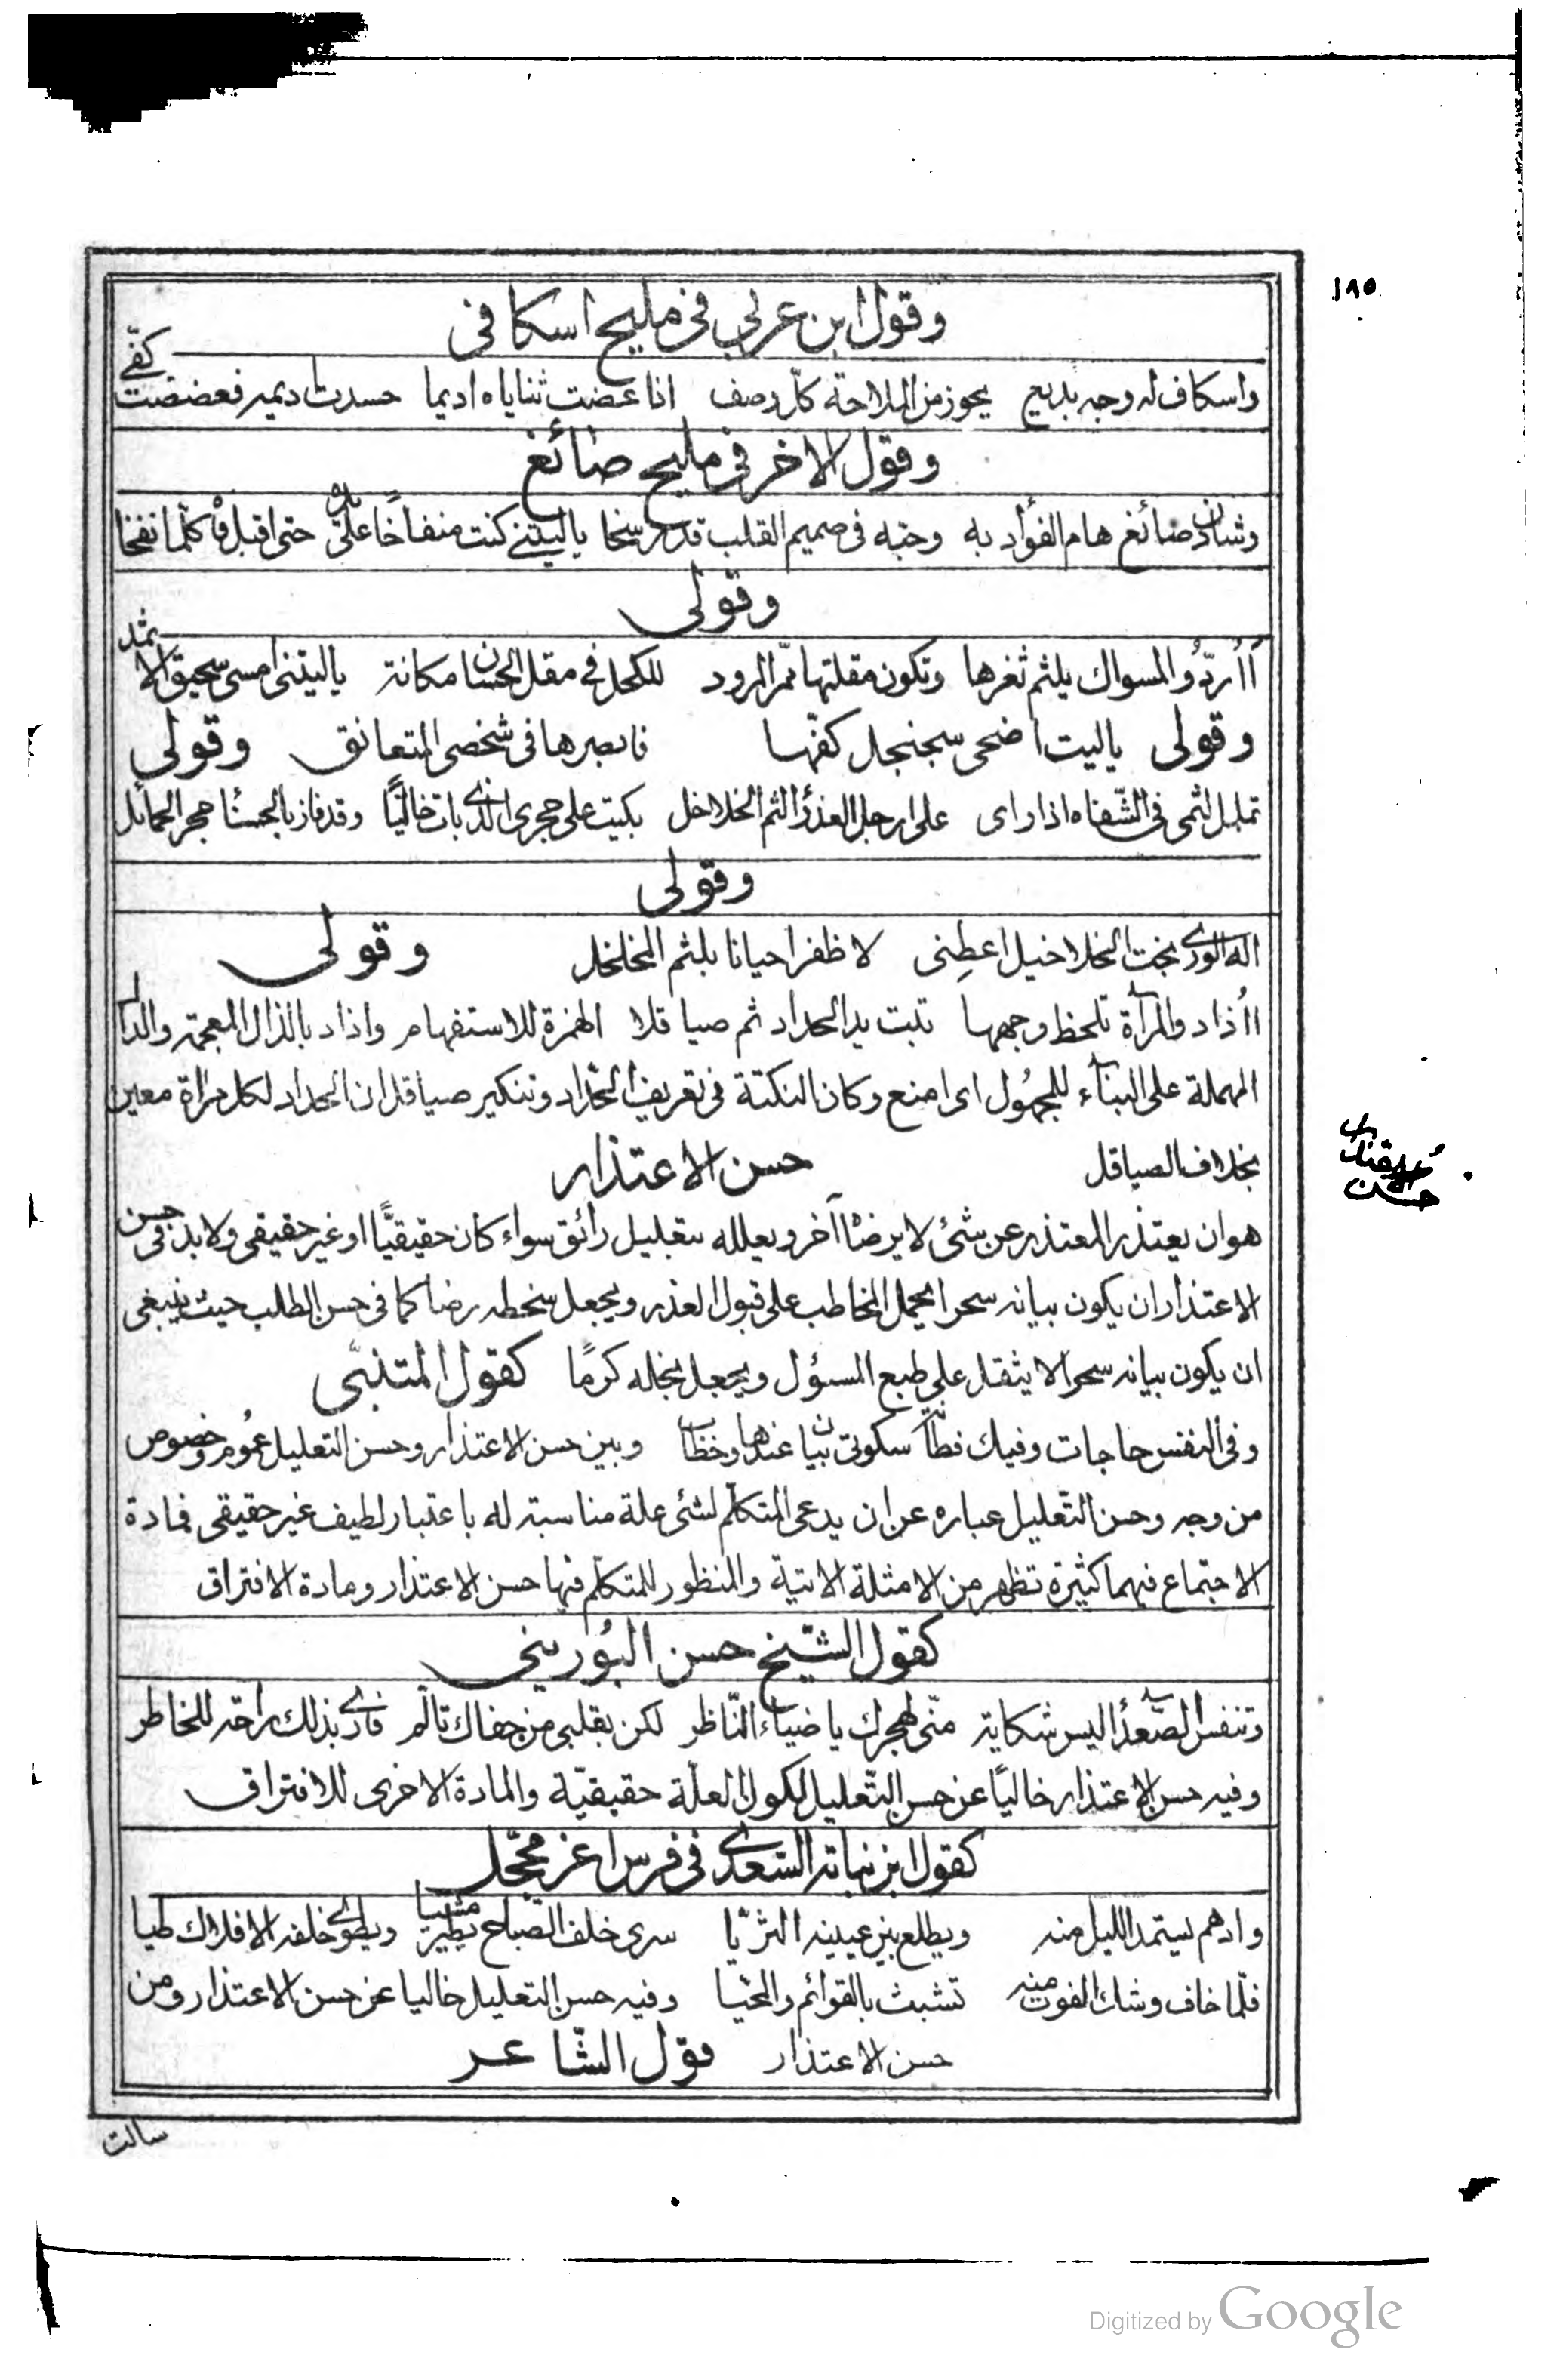 ١٨٥
وقول ابن عربي في مليح اسكافي
واسكاف له وجه بديع يحوز من الملاحة كل وصف اذا عضت ثناياه اديما حسدت اديمه فعضضت كفّي
وقول الاخر في مليح صائغ
وشادن صائغ هام الفؤاد به وحبّه في صميم القلب قد رسخا ياليتني كنت منفاخًا على يده حتى اقبل فاه كلّما نفخا
وقولي
أأردّ والمسواك يلثم ثغرها وتكون مقلتها ممّر المرود للكحل في مقل الحسان مكانة ياليتني امسى سحيق الاثمد
وقولي ياليت اضحى سجنجل كفّها فابصرها في شخصي المتعانق وقولي
تململ لثمي في الشّفاه اذا راى على ارجل العذراء لثم الخلاخل بكيت على حجري الذي بات خاليًا وقد فاز بالحسناء حجر الحمائل
وقولي
اله الورى بخت الخلاخيل اعطِنى لاظفر احيانا بلثم المخلخل وقولي
أأُذاد والمرآة تلحظ وجهها تبت يد الحداد ثم صياقلا الهمزة للاستفهام واذاد بالذال المعجمة والدال
المهملة على البناء للمجهُول اى امنع وكان النكتة في تعريف الحدّاد وتنكير صياقل ان الحداد لكل مراة معين
بخلاف الصياقل حسن الاعتذار
هو ان يعتذر المعتذر عن شئ لا يرضاه آخر ويعلله بتعليل رائق سواء كان حقيقيًّا او غير حقيقى ولا بد فى حسن
الاعتذار ان يكون بيانه سحرا يحمل المخاطب على قبول العذر ويجعل سخطه رضا كما فى حسن الطلب حيث ينبغى
ان يكون بيانه سحرا لا يثقل على طبع المسؤل ويجعل بخله كرمًا كقول المتنبّى
وفى النفس حاجات وفيك فطانة سكوتى بيان عندها وخطاب وبين حسن الاعتذار وحسن التعليل عمُوم وخصوص
من وجه وحسن التّعليل عباره عن ان يدعى المتكلّم لشئ علة مناسبة له باعتبار لطيف غير حقيقى فمادة
الاجتماع فيهما كثيرة تظهر من الامثلة الاتية والمنظور للمتكلّم فيها حسن الاعتذار ومادة الافتراق
كقول الشّيخ حسن البُوريني
وتنفسى الصّعداء ليس شكاية منّى لهجرك يا ضياء النّاظر لكن بقلبى من جفاك تالّم فارى بذلك راحة للخاطر
وفيه حسن الاعتذار خاليًا عن حسن التّعليل لكون العلّة حقيقيّة والمادة الاخرى للافتراق
كقول ابن نباته السّعدى فى فرس اغر محجّل
وادهم يستمد الليل منه ويطلع بين عينيه الثريّا سرى خلف الصّباح يطير مشيا ويطوى خلفه الافلاك طيا
فلمّا خاف وشك الفوت منه تشبث بالقوائم والمحيّا وفيه حسن التعليل خاليا عن حسن الاعتذار ومن
حسن الاعتذار قول الشّاعر
سالت
Digitized by Google